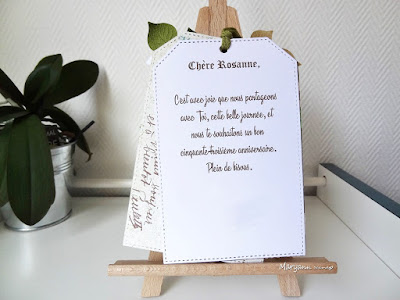 Chère Rosanne,
C'est avec joie que nous partageons
avec Toi, cette belle journée, et
nous te souhaitons un bon
cinquante-troisième anniversaire.
Plein de bisous.
Maryann